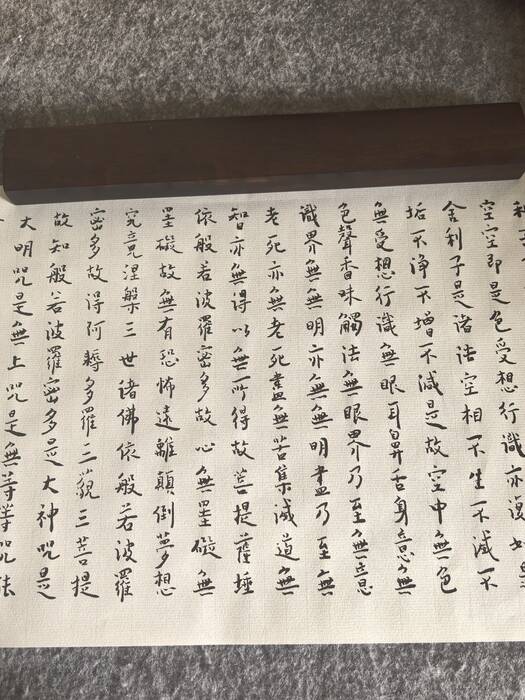 空空即是色受想行識亦復如是
舍利子是諸法空相不生不滅不
垢不淨不增不減是故空中無色
無受想行識無眼耳鼻舌身意無
色聲香味觸法無眼界乃至無意
識界無無明亦無無明盡乃至無
老死亦無老死盡無苦集滅道無
智亦無得以無所得故菩提薩埵
依般若波羅密多故心無罣礙無
罣礙故無有恐怖遠離顛倒夢想
究竟涅槃三世諸佛依般若波羅
密多故得阿耨多羅三藐三菩提
故知般若波羅密多是大神咒是
大明咒是無上咒是無等等咒能